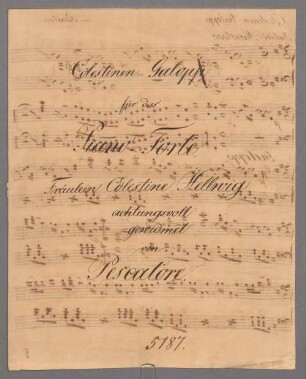 Cölestinen-Galopp
für das
Piano-Forte
Fräulein Cölestine Hellwig
achtungsvoll
gewidmet
von
Pescatore.
5187.